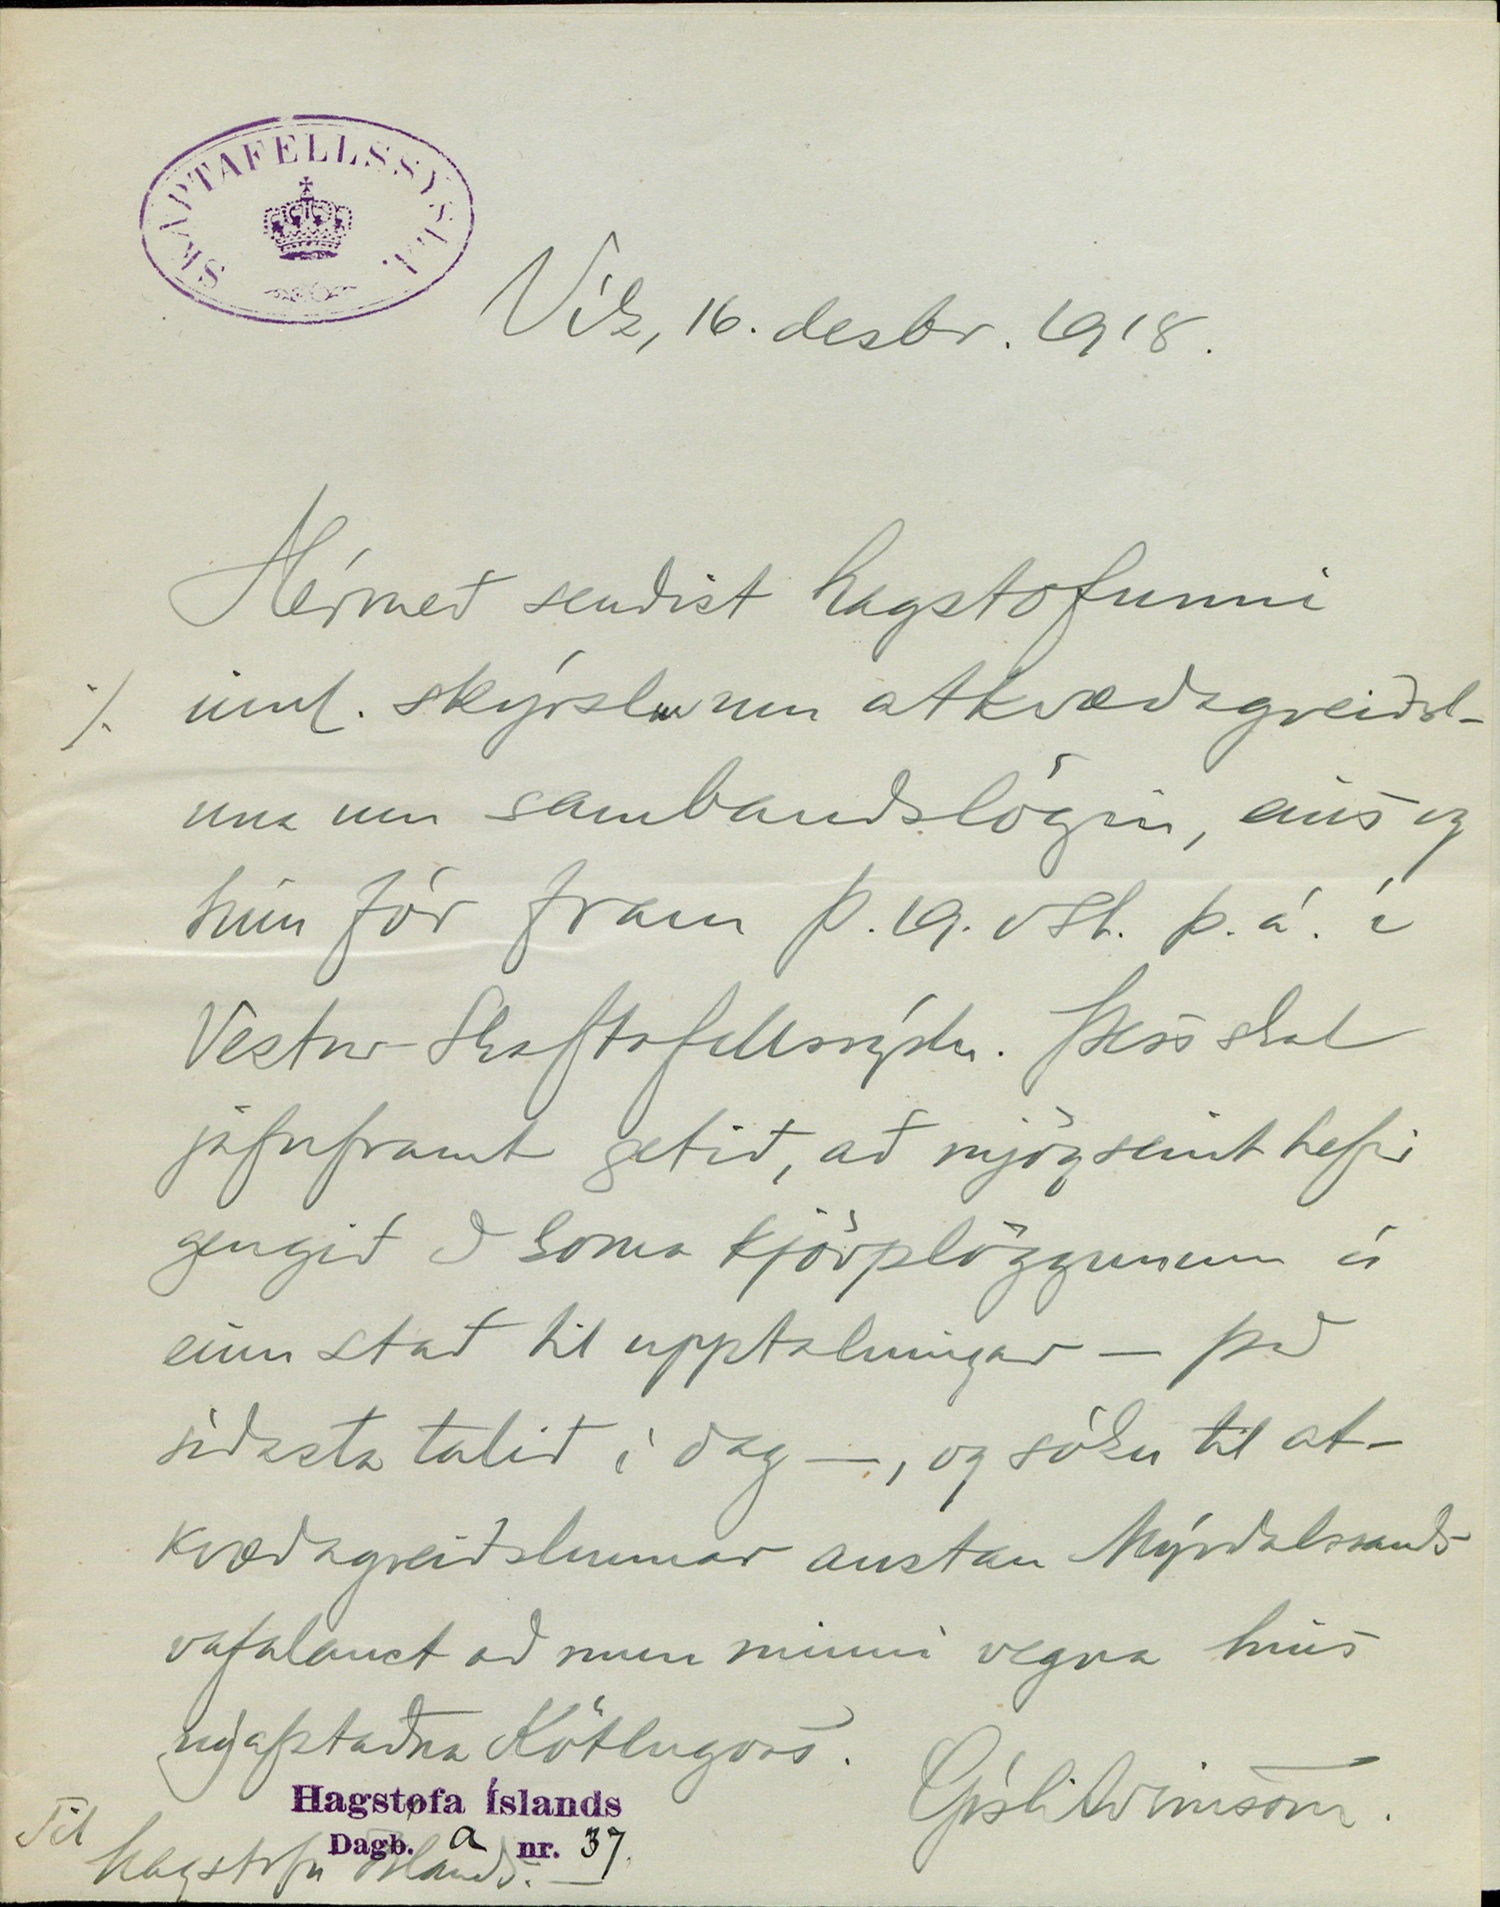 SKAPTAFELLSSÝSLA.
Vík, 16. desbr. 1918.
Hérmeð sendist hagstofunni
./. innl. skýrsla um atkvæðagreiðsl-
una um sambandslögin, eins og
hún fór fram þ. 19. okt. þ. á. í
Vestur-Skaftafellssýslu. Þess skal
jafnframt getið, að mjög seint hefir
gengið að koma kjörplöggunum á
einn stað til upptalningar — það
síðasta talið í dag —, og sókn til at-
kvæðagreiðslunnar austan Mýrdalssands
vafalaust að mun minni vegna hins
nýafstaðna Kötlugoss.
Gísli Sveinsson.
Hagstofa Íslands
Dagb. a nr. 37.
Til
hagstofu Íslands.